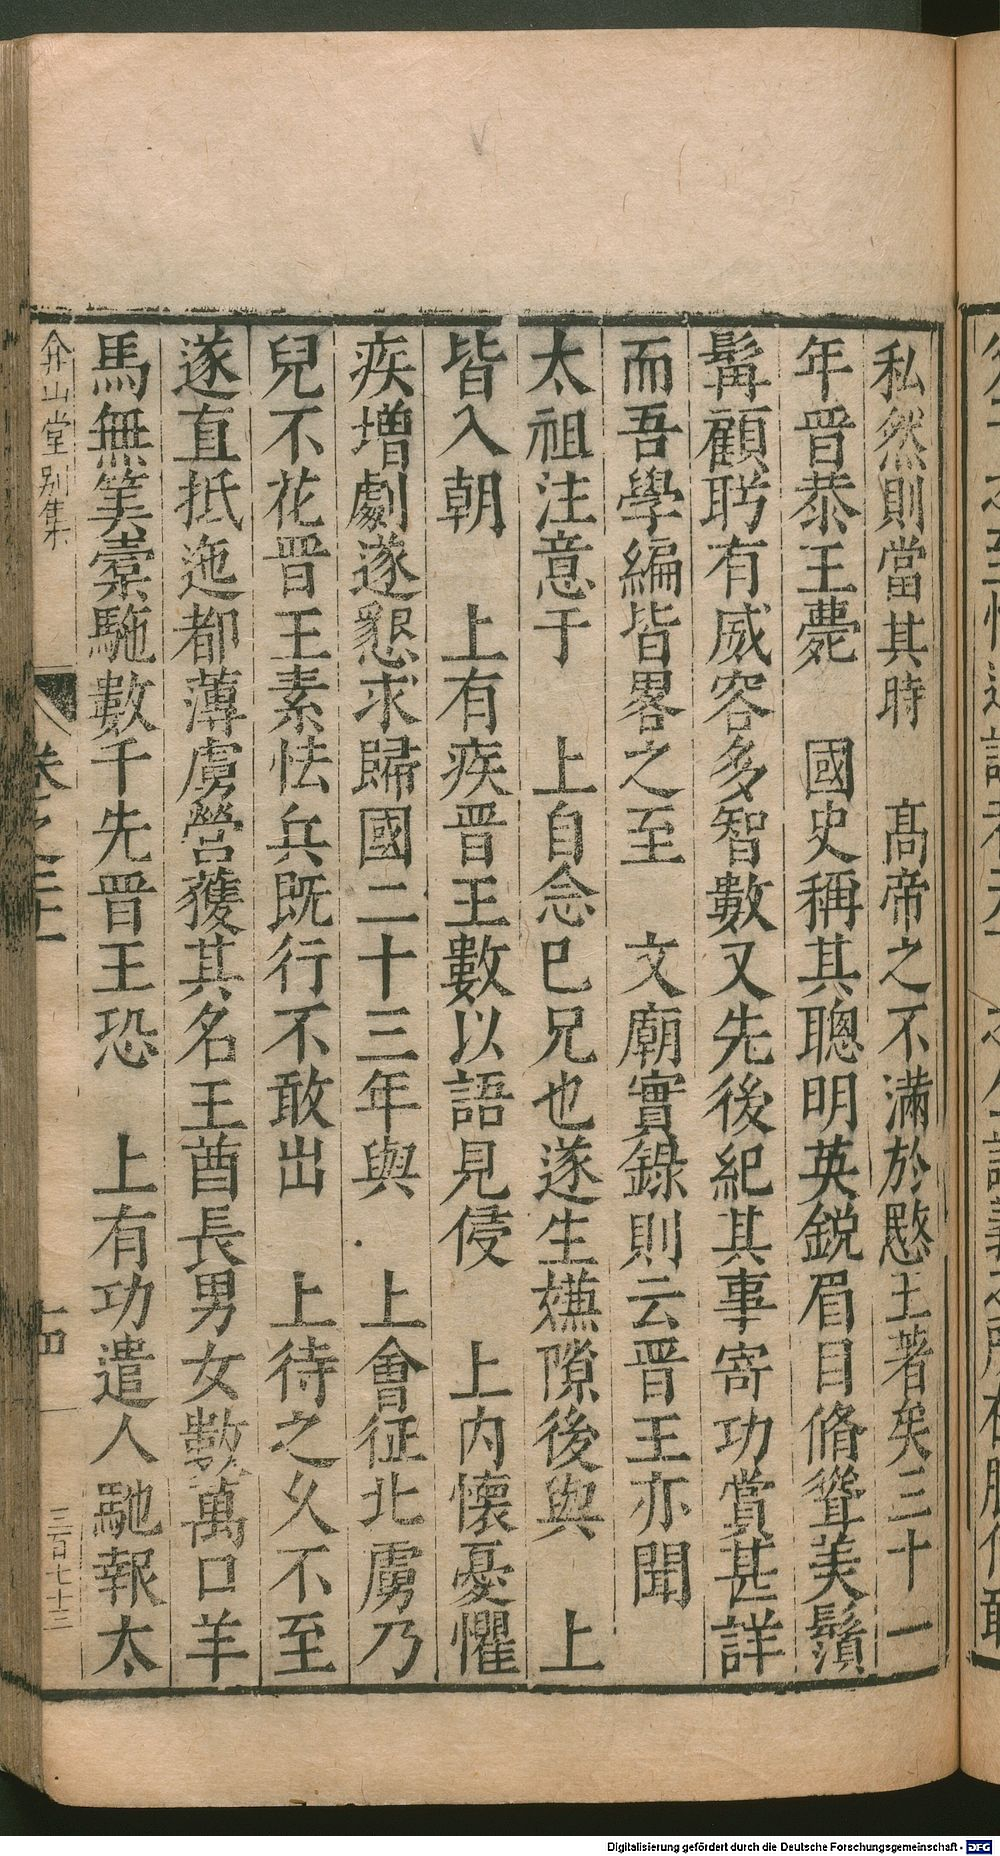 私然則當其時　高帝之不滿於愍王著矣三十一
年晉恭王薨　國史稱其聰明英銳眉目脩聳美鬚
髯顧盻有威容多智數又先後紀其事寄功賞甚詳
而吾學編皆畧之至　文廟實錄則云晉王亦聞
太祖注意于　上自念已兄也遂生嫌隙後與　上
皆入朝　上有疾晉王數以語見侵　上內懷憂懼
疾增劇遂懇求歸國二十三年與　上會征北虜乃
兒不花晉王素怯兵既行不敢出　上待之久不至
遂直抵迤都薄虜營獲其名王酋長男女數萬口羊
馬無筭橐駞數千先晉王恐　上有功遣人馳報太
弇山堂別集
卷之三十
十四
三百七十三
Digitalisierung gefördert durch die Deutsche Forschungsgemeinschaft - DFG